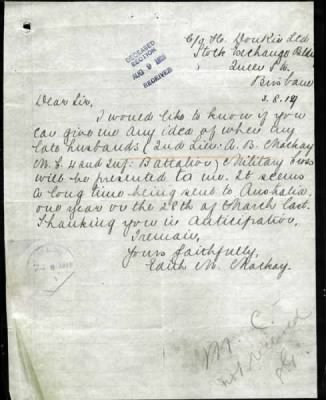 C/o H. Donkin Ltd
Stock Exchange Bldg
Queen St.
Brisbane
DECEASED
SECTION
AUG 9 1919
RECEIVED
3.8.19
Dear Sir,
I would like to know if you
can give me any idea of when my
late husbands (2nd Lieu. A. B. Mackay
M.C. 42nd Inf. Battalion) Military Cross
will be presented to me. It seems
a long time being sent to Australia,
one year on the 28th of March last.
Thanking you in Anticipation,
I remain,
Yours faithfully,
Edith M. Mackay.
M.C.
not received